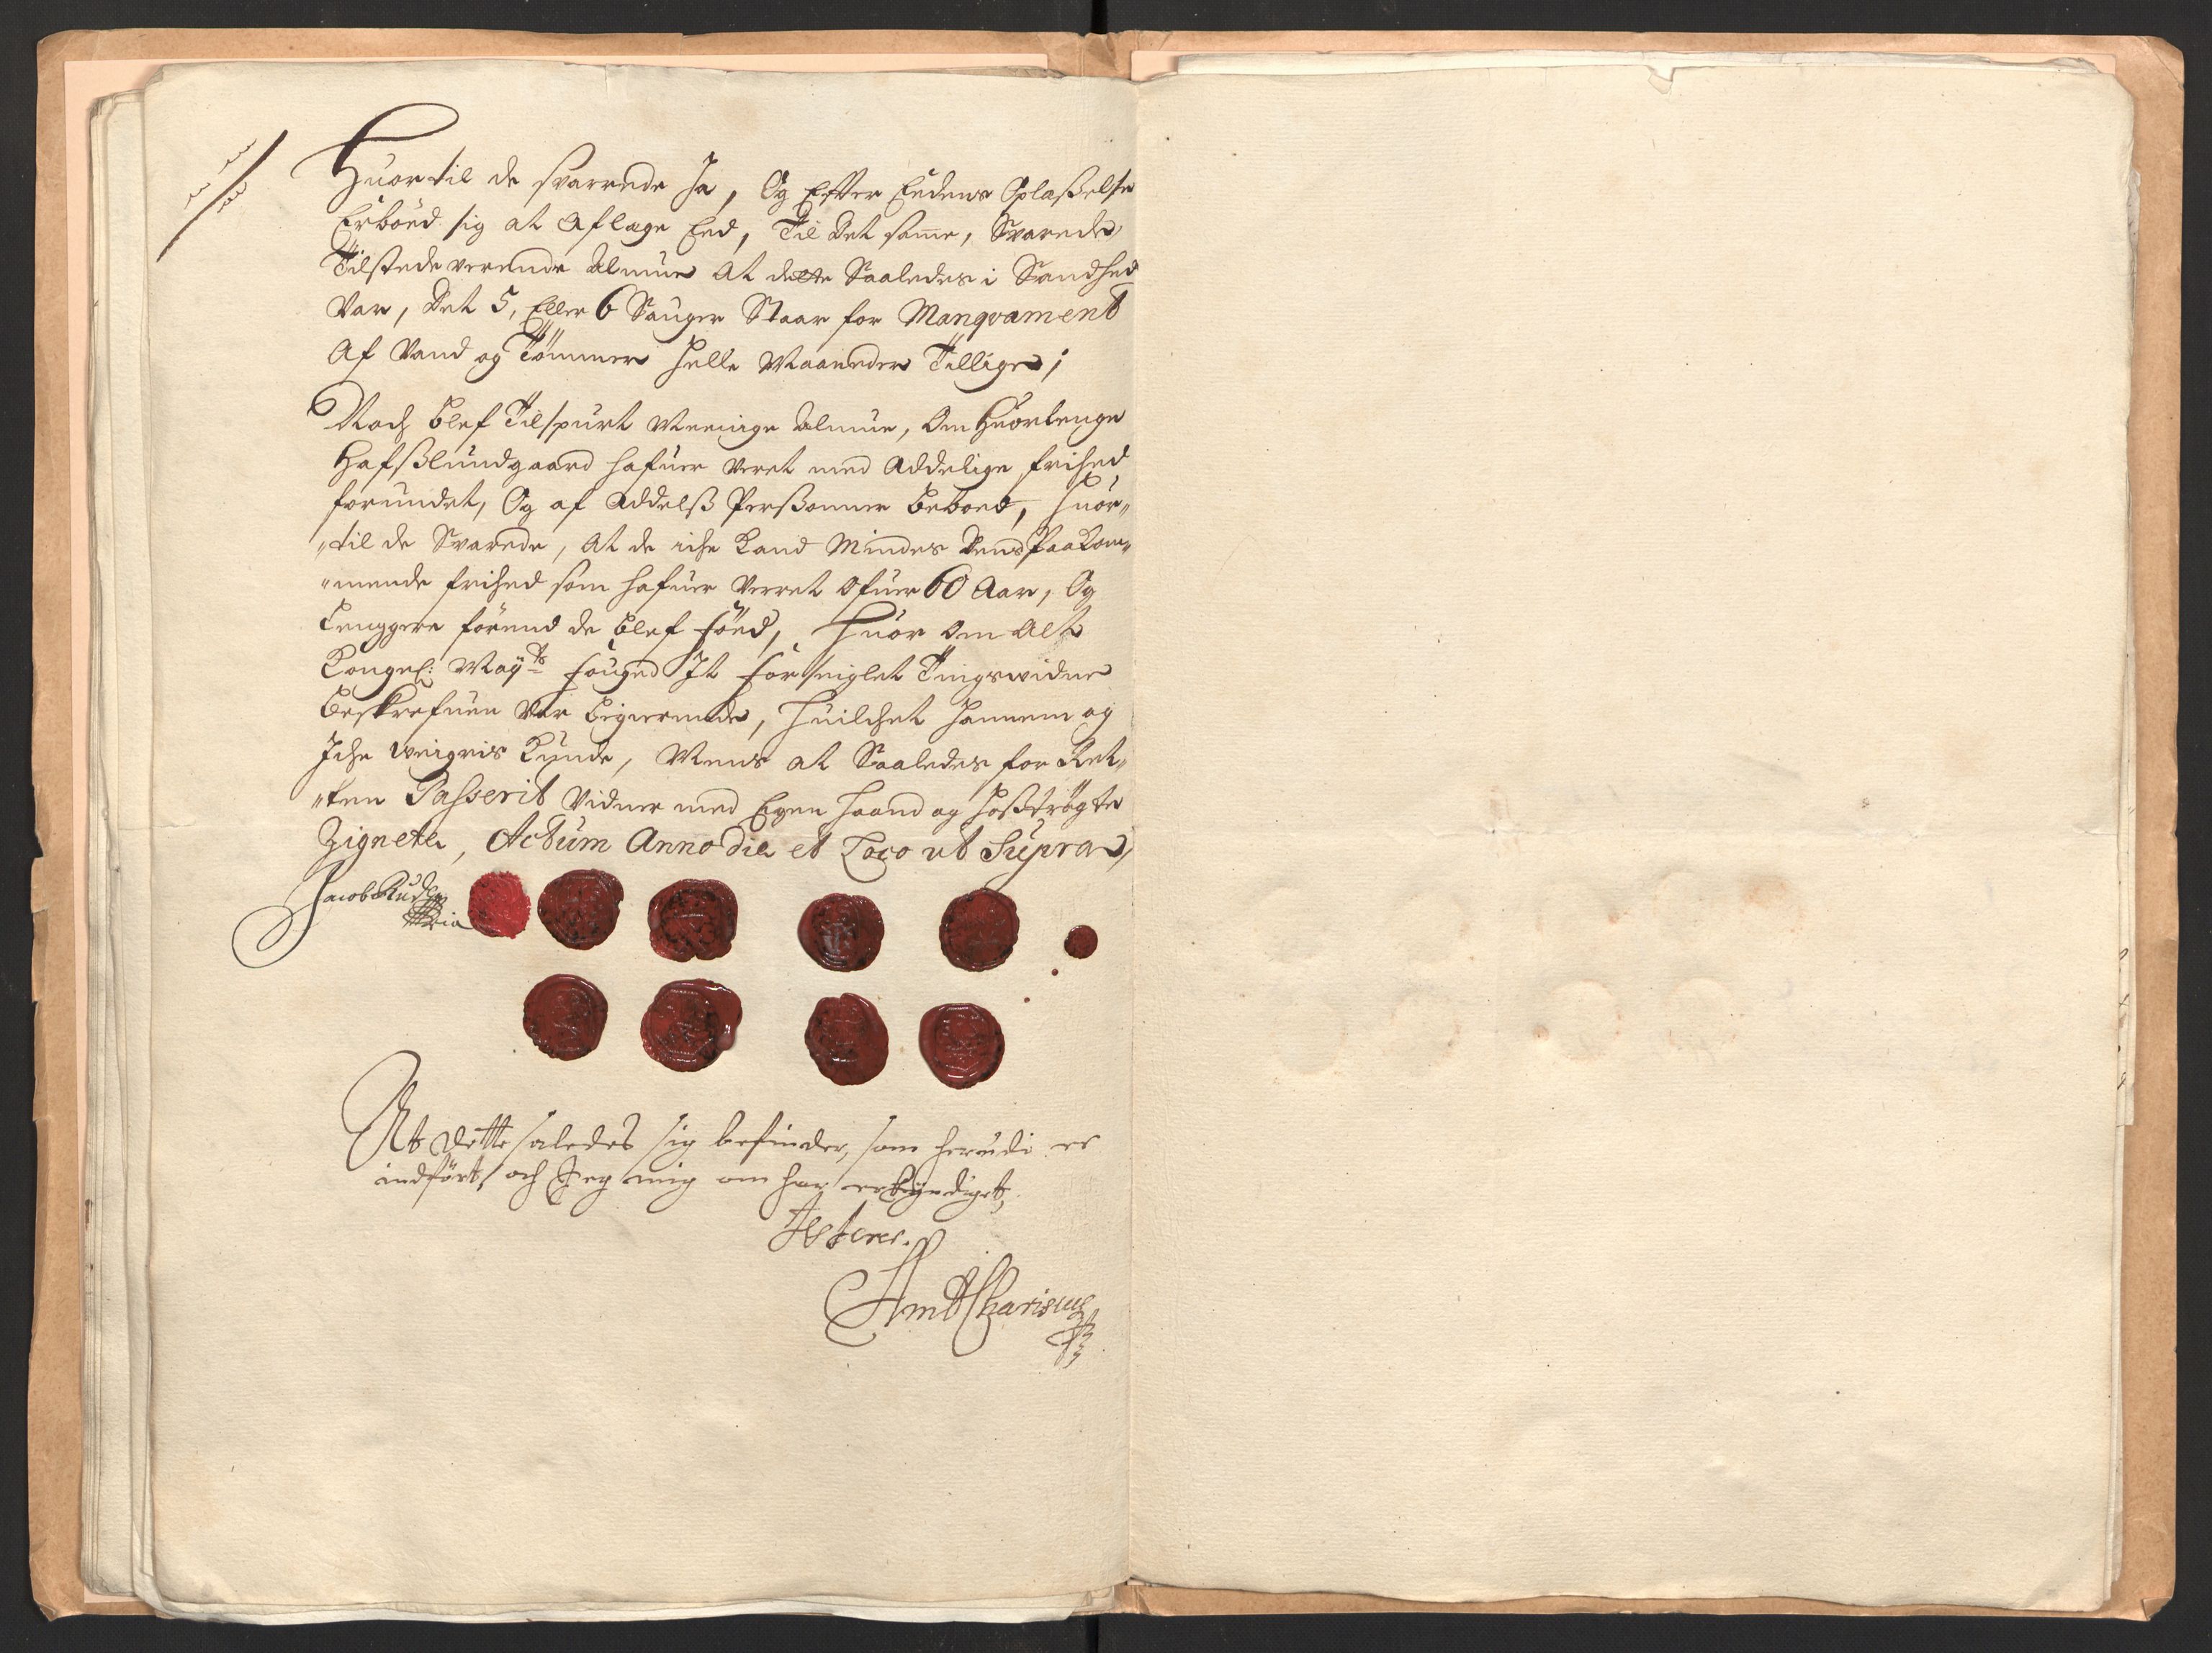 Huortil de svarrede Ja, Og Efter Eedens Oplæßelse
Erböed sig at aflæge Eed, Til Det samme, Svarede
Tilstedeverende Almue at dette Saaledes i Sandhed
Var, Det 5, Eller 6 Sauger Staar for Manqvament
Af Vand og Tömmer helle Maaneder Tillige;
Noch blef Tilspurt Menige Almue, Om Huorlenge
Hafßlundgaard hafuer veret med Addelige frihed
forundet, Og af Addelß Perßonner beboed, huor„
„til de Svarede, at de iche Kand Mindes Dens Paakom„
„mende frihed som hafuer Verret ofuer 60 Aar, Og
Lenggere förend de blef föed, Huor Om alt
Kongel: Maÿts fouged It forseiglet Tingswidne
beskrefuen Var begierende, huilchet hannem og
Iche weigris Kunde, Mens at Saaledes for Ret„
„ten Passerit Vidner med Egen haand og hoßtrögte
Zignete, Actum Anno die et Loco ut Supra,
Jacob
At dette saledes sig befinder, som herudi er
indfört, och Jeg mig om har erkyndiget,
Testerer.